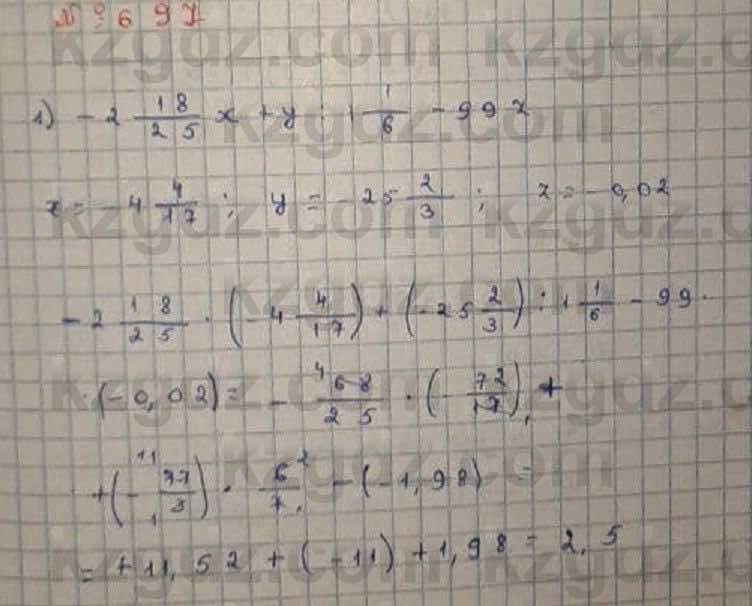 № 697
1) -2 18/25 x + y : 1 1/6 - 99z
x = -4 4/17 ; y = -25 2/3 ; z = -0,02
-2 18/25 · (-4 4/17) + (-25 2/3) : 1 1/6 - 99 ·
· (-0,02) = - 68/25 · (- 72/17) +
+ (- 77/3) · 6/7 - (-1,98) =
= +11,52 + (-11) + 1,98 = 2,5